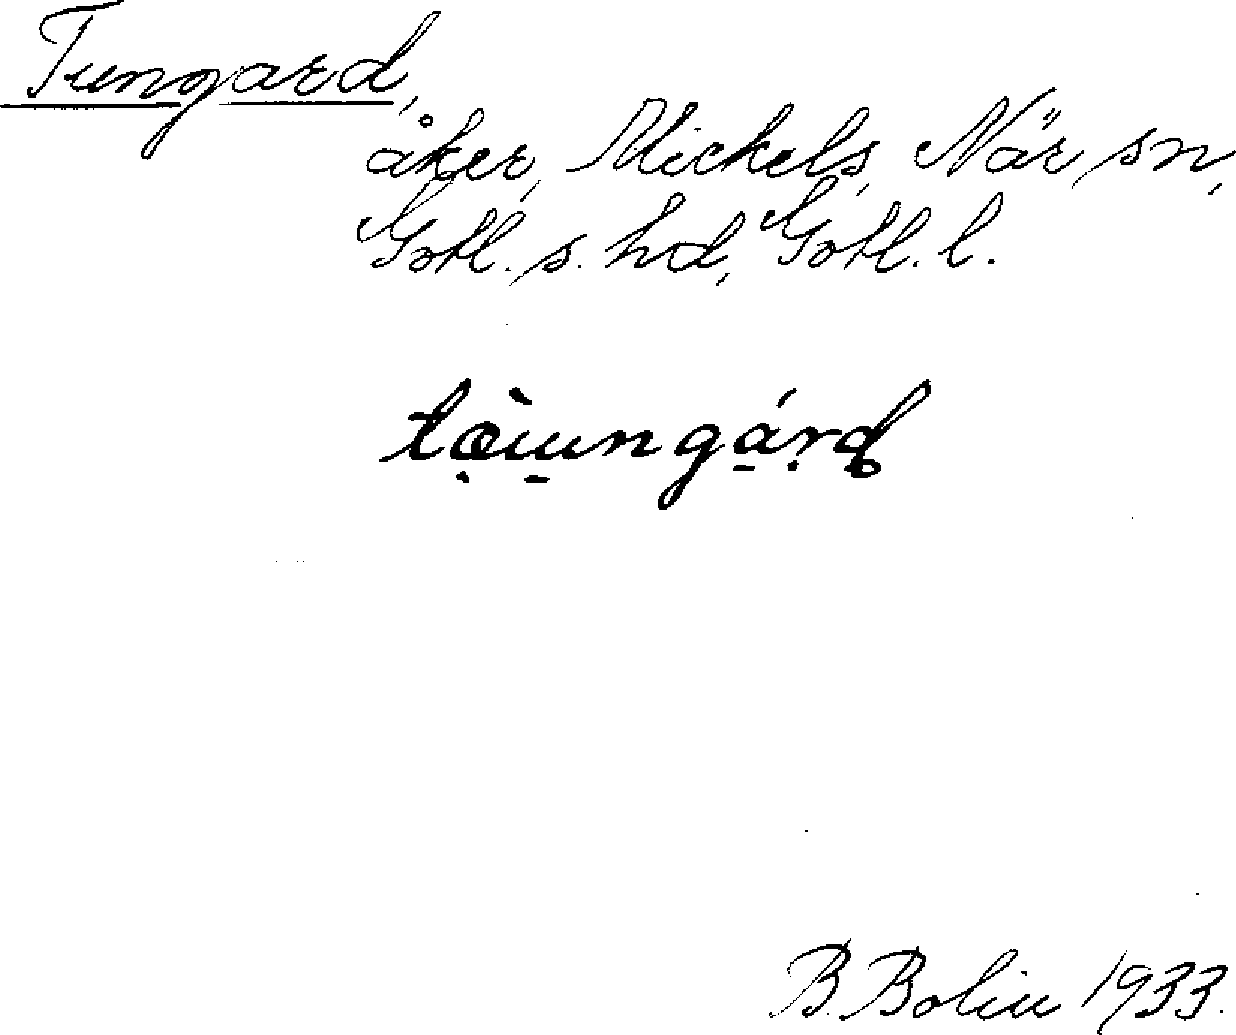 Tungard,
åker, Mickels, När sn,
Gotl. s. hd, Gotl. l.
B. Bolin 1933.